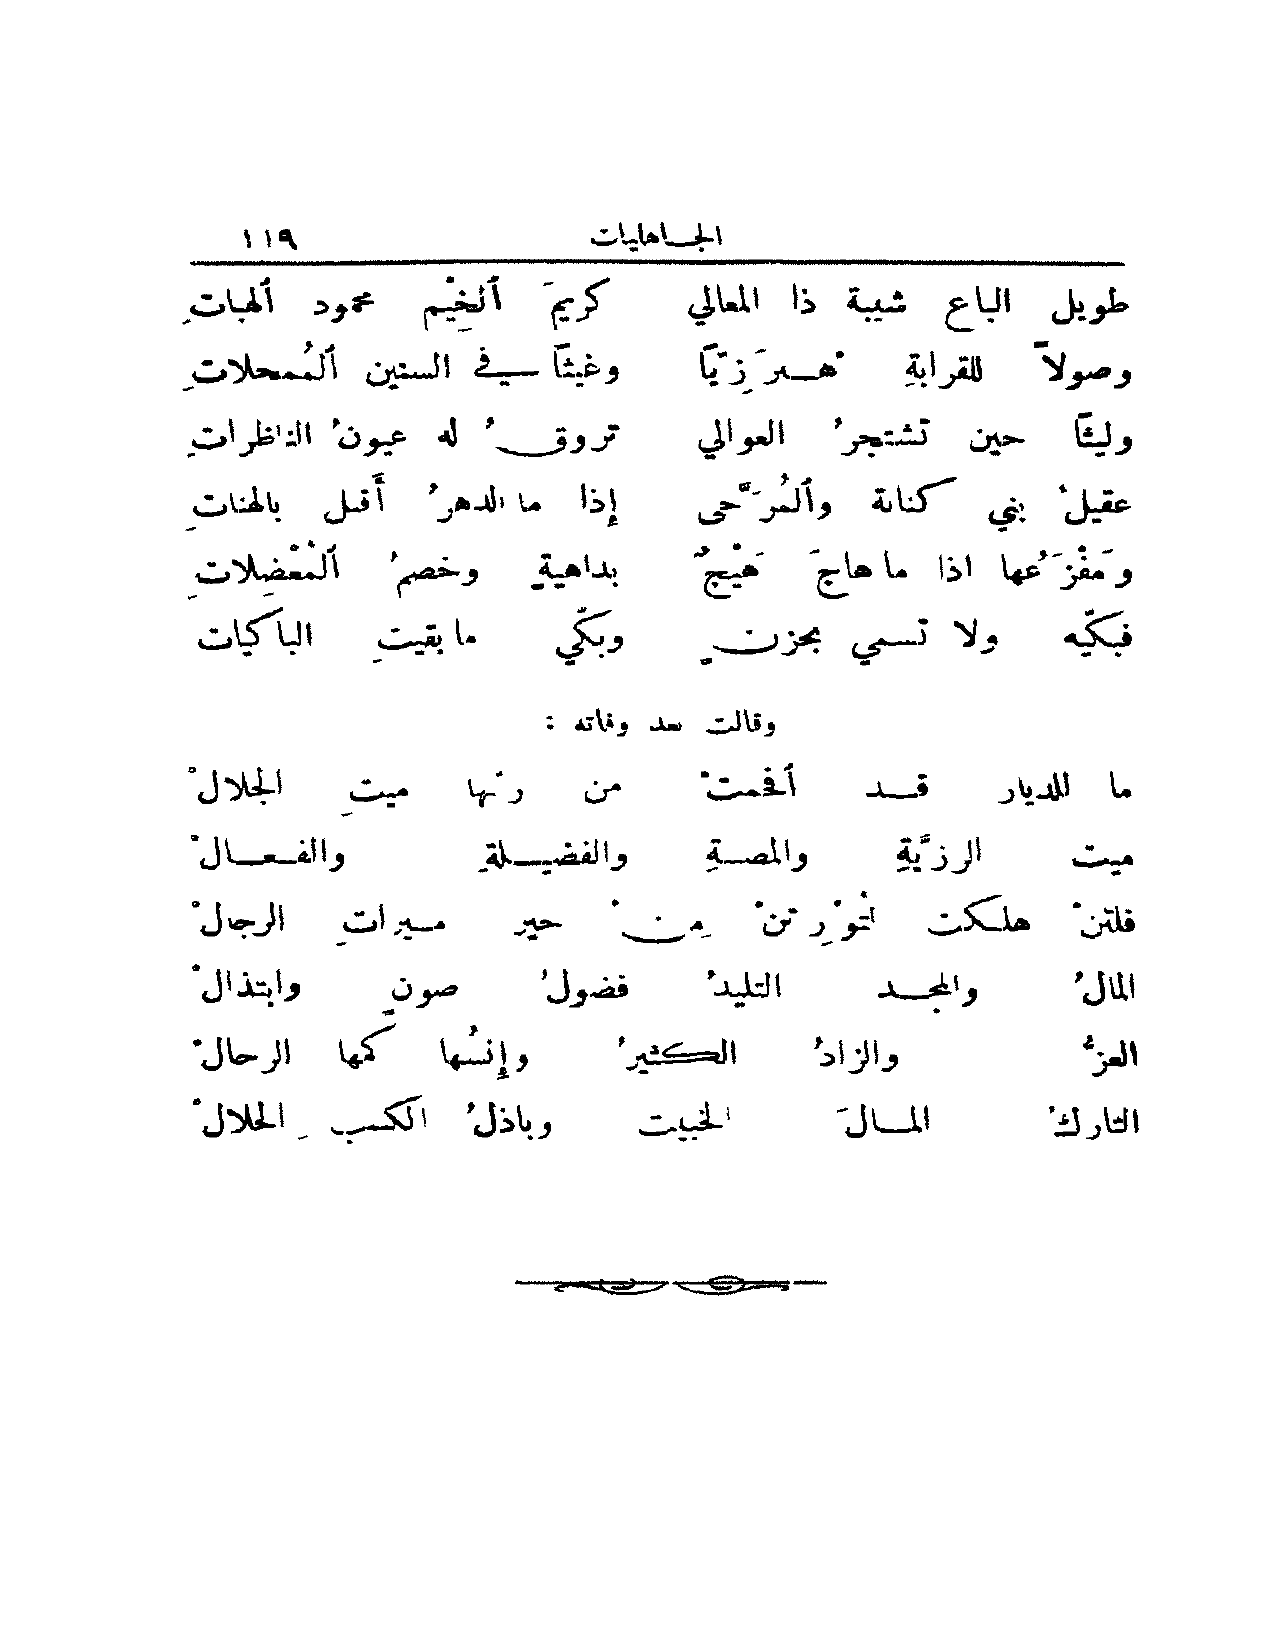 الجاهليات ١١٩
طويل الباع شيبة ذا المعالي كريمَ ٱلخِيْم محمود ٱلهبات
وصولاً للقرابةِ هِبرِزِيًّا وغيثًا في السنين ٱلمُمحلات
وليثًا حين تشتجرُ العوالي تروقُ له عيونُ الناظراتِ
عقيلُ بني كنانة وٱلمُرَجّى إذا ما الدهرُ أقبل بالهناتِ
ومَفْزَعُها اذا ما هاجَ هَيْجٌ بداهيةٍ وخصمُ ٱلمُعْضِلاتِ
فبكّيه ولا تسمي بحزنٍ وبكّي ما بقيتِ الباكيات
وقالت بعد وفاته :
ما للديار قد أقحمتْ من ربّها ميتِ الجلالْ
ميت الرزيّةِ والمصيبةِ والفضيلةِ والفعالْ
فلئنْ هلكت لتُورِثنْ مِنْ خير ميراتِ الرجالْ
المالُ والمجد التليدُ فضولُ صونٍ وابتذالْ
العزُّ والزادُ الكثيرُ وإنسُها كمها الرحالْ
التاركُ المالَ الخبيت وباذلُ الكسبِ الحلالْ